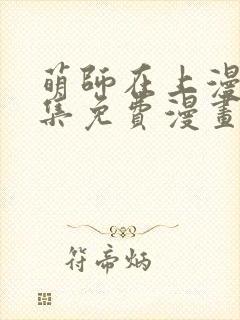 萌師在上漫
集免費漫畫
符帝炳